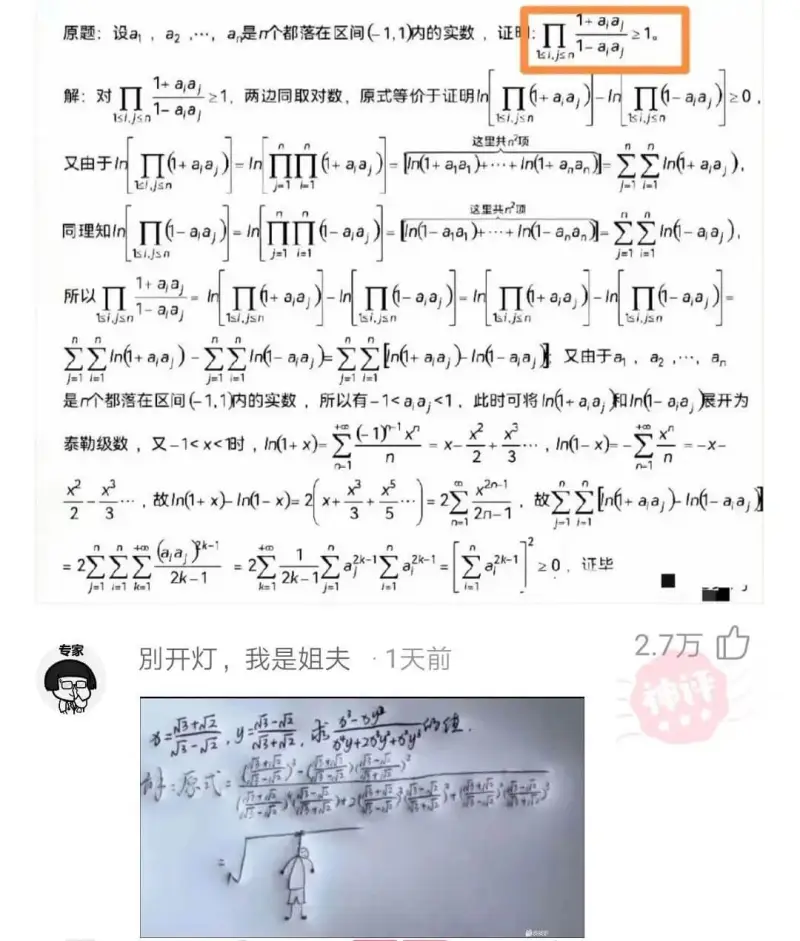 原题：设a₁，a₂，…，aₙ是n个都落在区间(-1,1)内的实数，证明：∏_{1≤i,j≤n} (1+aᵢaⱼ)/(1-aᵢaⱼ) ≥1。
解：对∏_{1≤i,j≤n} (1+aᵢaⱼ)/(1-aᵢaⱼ) ≥1，两边同取对数，原式等价于证明ln[∏_{1≤i,j≤n}(1+aᵢaⱼ)]-ln[∏_{1≤i,j≤n}(1-aᵢaⱼ)]≥0，
这里共n²项
又由于ln[∏_{1≤i,j≤n}(1+aᵢaⱼ)]=ln[∏_{j=1}^{n}∏_{i=1}^{n}(1+aᵢaⱼ)]=[ln(1+a₁a₁)+…+ln(1+aₙaₙ)]=∑_{j=1}^{n}∑_{i=1}^{n}ln(1+aᵢaⱼ)，
这里共n²项
同理知ln[∏_{1≤i,j≤n}(1-aᵢaⱼ)]=ln[∏_{j=1}^{n}∏_{i=1}^{n}(1-aᵢaⱼ)]=[ln(1-a₁a₁)+…+ln(1-aₙaₙ)]=∑_{j=1}^{n}∑_{i=1}^{n}ln(1-aᵢaⱼ)，
所以∏_{1≤i,j≤n} (1+aᵢaⱼ)/(1-aᵢaⱼ) = ln[∏_{1≤i,j≤n}(1+aᵢaⱼ)]-ln[∏_{1≤i,j≤n}(1-aᵢaⱼ)]=ln[∏_{1≤i,j≤n}(1+aᵢaⱼ)]-ln[∏_{1≤i,j≤n}(1-aᵢaⱼ)]=
∑_{j=1}^{n}∑_{i=1}^{n}ln(1+aᵢaⱼ)-∑_{j=1}^{n}∑_{i=1}^{n}ln(1-aᵢaⱼ)=∑_{j=1}^{n}∑_{i=1}^{n}[ln(1+aᵢaⱼ)-ln(1-aᵢaⱼ)]；又由于a₁，a₂，…，aₙ
是n个都落在区间(-1,1)内的实数，所以有-1<aᵢaⱼ<1，此时可将ln(1+aᵢaⱼ)和ln(1-aᵢaⱼ)展开为
泰勒级数，又-1<x<1时，ln(1+x)=∑_{n=1}^{+∞} (-1)^{n-1}xⁿ/n = x-x²/2+x³/3…，ln(1-x)=-∑_{n=1}^{+∞} xⁿ/n = -x-
x²/2-x³/3…，故ln(1+x)-ln(1-x)=2(x+x³/3+x⁵/5…)=2∑_{n=1}^{∞} x^{2n-1}/(2n-1)，故∑_{j=1}^{n}∑_{i=1}^{n}[ln(1+aᵢaⱼ)-ln(1-aᵢaⱼ)]
=2∑_{j=1}^{n}∑_{i=1}^{n}∑_{k=1}^{+∞} (aᵢaⱼ)^{2k-1}/(2k-1) = 2∑_{k=1}^{+∞} 1/(2k-1) ∑_{j=1}^{n}aⱼ^{2k-1}∑_{i=1}^{n}aᵢ^{2k-1}=[∑_{i=1}^{n}aᵢ^{2k-1}]²≥0，证毕
专家
別开灯，我是姐夫 ·1天前
2.7万
神评
x=(√3+√2)/(√3-√2), y=(√3-√2)/(√3+√2), 求 (x³-xy²)/(x⁴y+2x³y²+x²y³) 的值.
解:原式=(((√3+√2)/(√3-√2))³-((√3+√2)/(√3-√2))((√3-√2)/(√3+√2))²)/(((√3+√2)/(√3-√2))⁴((√3-√2)/(√3+√2))+2((√3+√2)/(√3-√2))³((√3-√2)/(√3+√2))²+((√3+√2)/(√3-√2))²((√3-√2)/(√3+√2))³)
=√